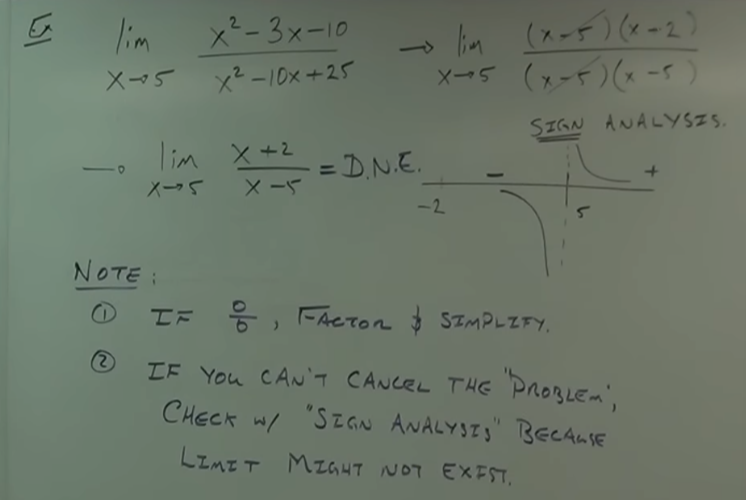 Ex lim x→5 (x² - 3x - 10)/(x² - 10x + 25) → lim x→5 ((x-5)(x-2))/((x-5)(x-5))
SIGN ANALYSIS.
→ lim x→5 (x+2)/(x-5) = D.N.E. - +
-2 5
NOTE:
① IF 0/0, FACTOR & SIMPLIFY.
② IF YOU CAN'T CANCEL THE "PROBLEM",
CHECK W/ "SIGN ANALYSIS" BECAUSE
LIMIT MIGHT NOT EXIST.